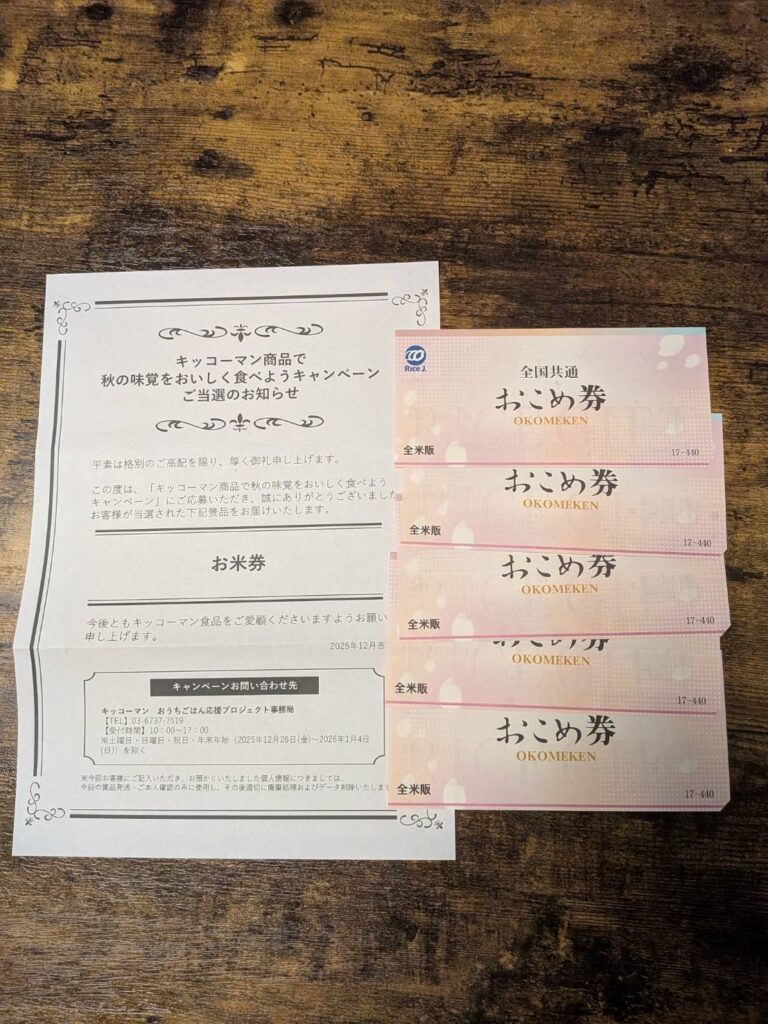 キッコーマン商品で
秋の味覚をおいしく食べようキャンペーン
ご当選のお知らせ
平素は格別のご高配を賜り、厚く御礼申し上げます。
この度は、「キッコーマン商品で秋の味覚をおいしく食べよう
キャンペーン」にご応募いただき、誠にありがとうございました
お客様が当選された下記景品をお届けいたします。
お米券
今後ともキッコーマン食品をご愛顧くださいますようお願い
申し上げます。
2025年12月吉
キャンペーンお問い合わせ先
キッコーマン おうちごはん応援プロジェクト事務局
【TEL】03-6737-7519
【受付時間】10:00~17:00
※土曜日・日曜日・祝日・年末年始（2025年12月26日(金)~2026年1月4日
(日)）を除く
※今回お客様にご記入いただき、お預かりいたしました個人情報につきましては、
今回の賞品発送・ご本人確認のみに使用し、その後適切に廃棄処理およびデータ削除いたします
Rice J.
全国共通
おこめ券
OKOMEKEN
全米販
17-440
おこめ券
OKOMEKEN
全米販
17-440
おこめ券
OKOMEKEN
全米販
17-440
おこめ券
OKOMEKEN
全米販
17-440
おこめ券
OKOMEKEN
全米販
17-440